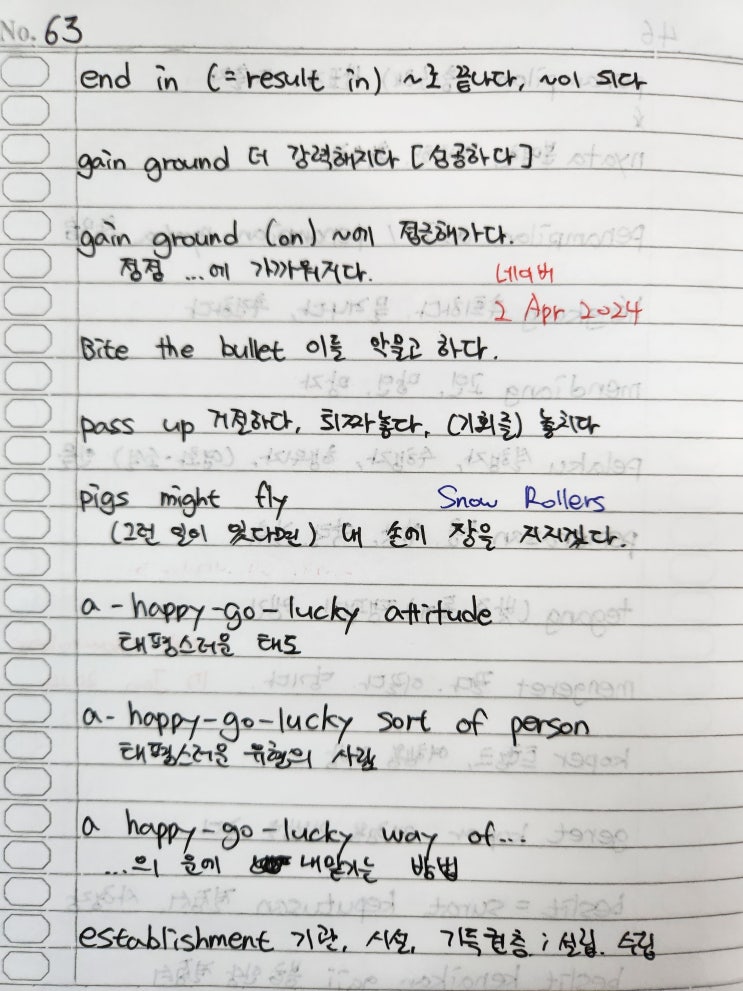 No. 63
end in (=result in) ~로 끝나다, ~이 되다
gain ground 더 강력해지다 [성공하다]
gain ground (on) ~에 접근해가다.
점점 ...에 가까워지다.
네이버
2 Apr 2024
Bite the bullet 이를 악물고 하다.
pass up 거절하다, 퇴짜놓다, (기회를) 놓치다
pigs might fly
Snow Rollers
(그런 일이 있다면) 내 손에 장을 지지겠다.
a-happy-go-lucky attitude
태평스러운 태도
a-happy-go-lucky sort of person
태평스러운 유형의 사람
a happy-go-lucky way of...
...의 운에 내맡기는 방법
establishment 기관, 시설, 기득권층; 설립. 수립